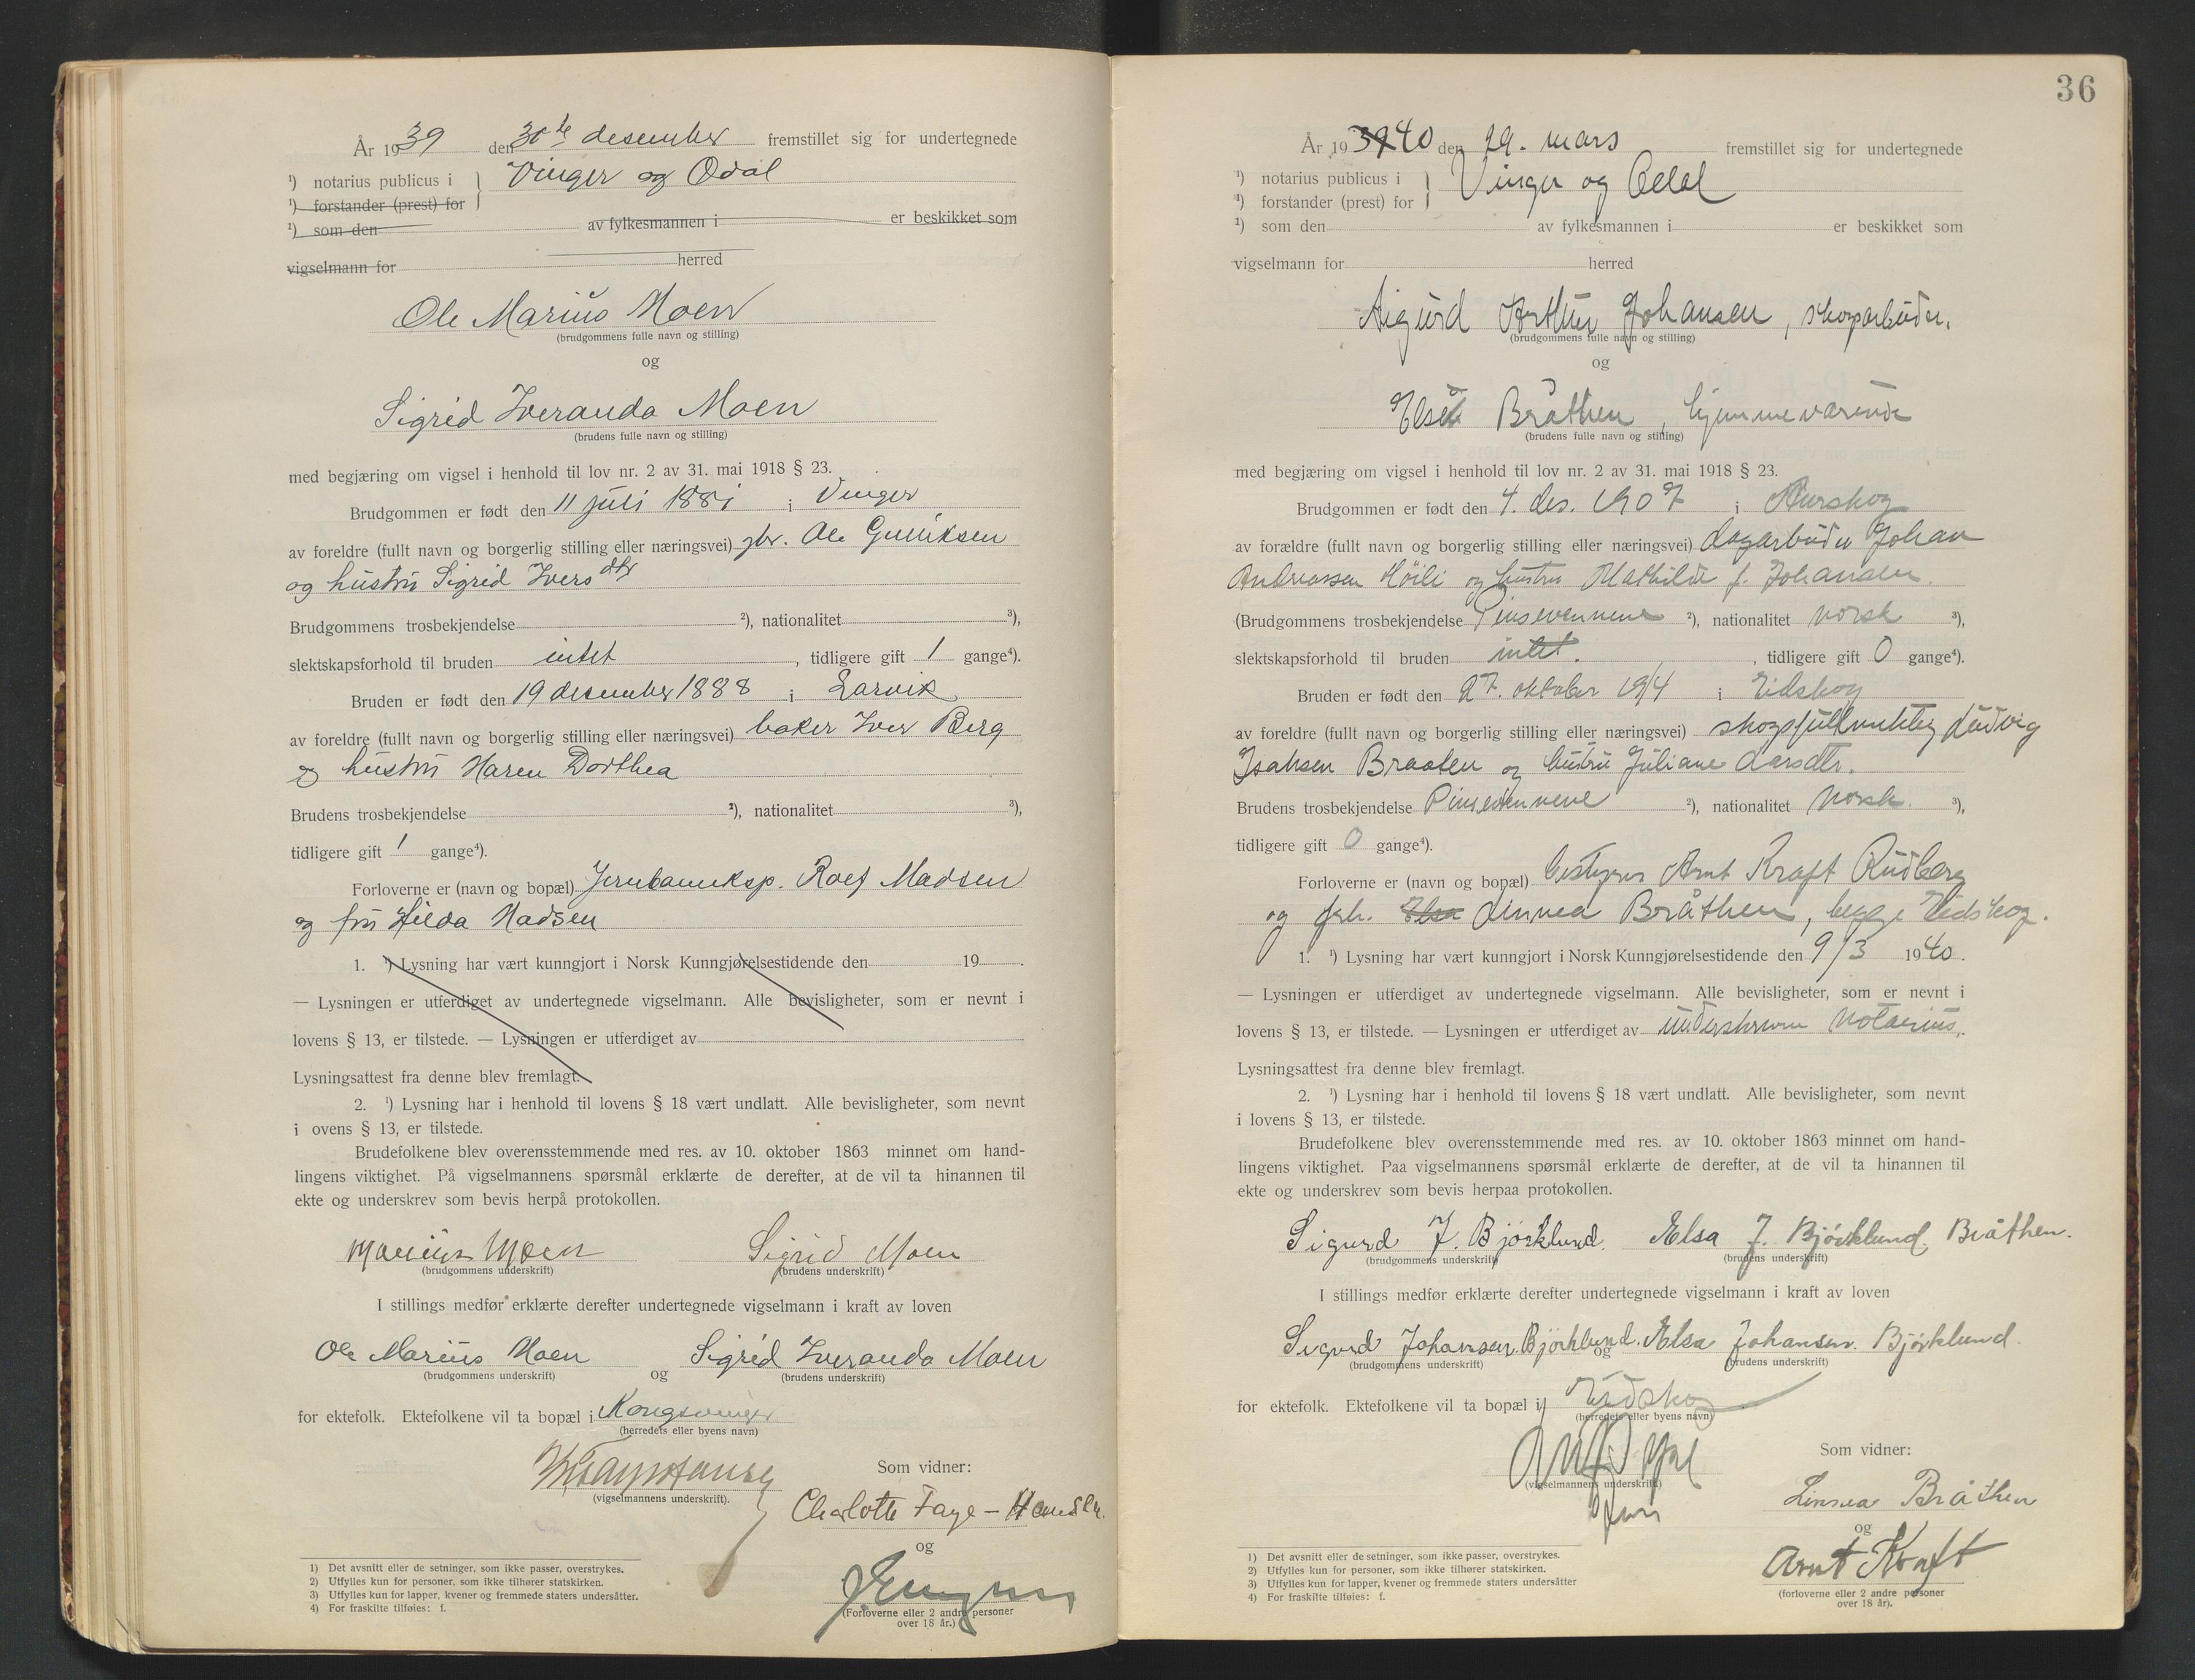 År 1939 den 30te desember fremstillet sig for undertegnede
¹) notarius publicus i } Vinger og Odal
¹) forstander (prest) for
¹) som den av fylkesmannen i er beskikket som
vigselmann for herred
Ole Marius Moen
(brudgommens fulle navn og stilling)
og
Sigrid Iveranda Moen
(brudens fulle navn og stilling)
med begjæring om vigsel i henhold til lov nr. 2 av 31. mai 1918 § 23.
Brudgommen er født den 11 juli 1881 i Vinger
av foreldre (fullt navn og borgerlig stilling eller næringsvei) gbr. Ole Gulliksen
og hustru Sigrid Iversdtr
Brudgommens trosbekjendelse ²), nationalitet ³),
slektskapsforhold til bruden intet, tidligere gift 1 gange⁴).
Bruden er født den 19 desember 1888 i Larvik
av foreldre (fullt navn og borgerlig stilling eller næringsvei) baker Iver Berg
og hustru Maren Dorthea
Brudens trosbekjendelse ²), nationalitet ³),
tidligere gift 1 gange⁴).
Forloverne er (navn og bopæl) Jernbaneeksp. Rolf Madsen
og fru Hilda Madsen
1. ¹) Lysning har vært kunngjort i Norsk Kunngjørelsestidende den 19 .
— Lysningen er utferdiget av undertegnede vigselmann. Alle bevisligheter, som er nevnt i
lovens § 13, er tilstede. — Lysningen er utferdiget av
Lysningsattest fra denne blev fremlagt.
2. ¹) Lysning har i henhold til lovens § 18 vært undlatt. Alle bevisligheter, som nevnt
i ovens § 13, er tilstede.
Brudefolkene blev overensstemmende med res. av 10. oktober 1863 minnet om hand-
lingens viktighet. På vigselmannens spørsmål erklærte de derefter, at de vil ta hinannen til
ekte og underskrev som bevis herpå protokollen.
Marius Moen Sigrid Moen
(brudgommens underskrift) (brudens underskrift)
I stillings medfør erklærte derefter undertegnede vigselmann i kraft av loven
Ole Marius Moen og Sigrid Iveranda Moen
(brudgommens underskrift) (brudens underskrift)
for ektefolk. Ektefolkene vil ta bopæl i Kongsvinger
(herredets eller byens navn)
(vigselmannens underskrift).
Som vidner:
Charlotte Faye-Hansen.
og
(Forloverne eller 2 andre personer
over 18 år.)
1) Det avsnitt eller de setninger, som ikke passer, overstrykes.
2) Utfylles kun for personer, som ikke tilhører statskirken.
3) Utfylles kun for lapper, kvener og fremmede staters undersåtter.
4) For fraskilte tilføies: f.
36
År 1939 40 den 29. mars fremstillet sig for undertegnede
¹) notarius publicus i } Vinger og Odal
¹) forstander (prest) for
¹) som den av fylkesmannen i er beskikket som
vigselmann for herred
Sigurd Arthur Johansen, skogsarbeider.
(brudgommens fulle navn og stilling)
og
Else Bråthen, hjemmeværende
(brudens fulle navn og stilling)
med begjæring om vigsel i henhold til lov nr. 2 av 31. mai 1918 § 23.
Brudgommen er født den 4. des. 1907 i Aurskog
av forældre (fullt navn og borgerlig stilling eller næringsvei) dagarbeider Johan
Andreassen Høili og hustru Mathilde f. Johansen.
(Brudgommens trosbekjendelse Pinsevennene ²), nationalitet norsk ³),
slektskapsforhold til bruden intet., tidligere gift 0 gange⁴).
Bruden er født den 27. oktober 1914 i Eidskog
av foreldre (fullt navn og borgerlig stilling eller næringsvei) skogsfullmektig Ludvig
Isaksen Braaten og hustru Juliane Larsdtr.
Brudens trosbekjendelse Pinsevennene ²), nationalitet norsk. ³),
tidligere gift 0 gange⁴).
Forloverne er (navn og bopæl) bestyrer Arnt Kraft Rudberg
og frk. Elsa Linnea Bråthen, begge Eidskog.
1. ¹) Lysning har vært kunngjort i Norsk Kunngjørelsestidende den 9/3 1940.
— Lysningen er utferdiget av undertegnede vigselmann. Alle bevisligheter, som er nevnt i
lovens § 13, er tilstede. — Lysningen er utferdiget av underskrevne notarius.
Lysningsattest fra denne blev fremlagt.
2. ¹) Lysning har i henhold til lovens § 18 vært undlatt. Alle bevisligheter, som nevnt
i lovens § 13, er tilstede.
Brudefolkene blev overensstemmende med res. av 10. oktober 1863 minnet om hand-
lingens viktighet. Paa vigselmannens spørsmål erklærte de derefter, at de vil ta hinannen til
ekte og underskrev som bevis herpaa protokollen.
Sigurd J. Bjørklund. Elsa J. Bjørklund. Bråthen.
(brudgommens underskrift) (brudens underskrift)
I stillings medfør erklærte derefter undertegnede vigselmann i kraft av loven
Sigurd Johansen. Bjørklund. og Elsa Johansen. Bjørklund.
(brudgommens underskrift) (brudens underskrift)
for ektefolk. Ektefolkene vil ta bopæl i Eidskog
(herredets eller byens navn)
(vigselmannens underskrift)
Som vidner:
Linnea Bråthen
og
Arnt Kraft
(forloverne eller 2 andre personer
over 18 år).
1) Det avsnitt eller de setninger, som ikke passer, overstrykes.
2) Utfylles kun for personer, som ikke tilhører statskirken.
3) Utfylles kun for lapper, kvener og fremmede staters undersåtter
4) For fraskilte tilføies: f.